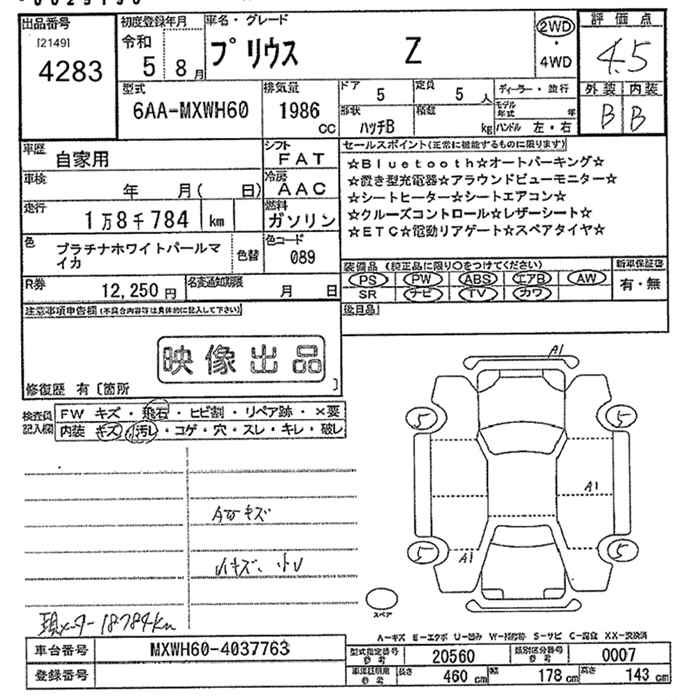 出品番号
[2149]
4283
初度登録年月
令和
5 8月
車名・グレード
プリウス Z
2WD
・
4WD
評価点
4.5
外装 内装
B B
型式
6AA-MXWH60
排気量
1986 cc
ドア
5
定員
5 人
形状
ハッチB
積載
kg
ディーラー・並行
モデル年式 年
ハンドル 左・右
車歴
自家用
シフト
FAT
車検
年 月( 日)
冷房
AAC
走行
1万8千784 km
燃料
ガソリン
色
プラチナホワイトパールマイカ
色替
色コード
089
R券
12,250 円
名変通知期限
月 日
セールスポイント(正常に機能するものに限ります)
☆Bluetooth☆オートパーキング☆
☆置き型充電器☆アラウンドビューモニター☆
☆シートヒーター☆シートエアコン☆
☆クルーズコントロール☆レザーシート☆
☆ETC☆電動リアゲート☆スペアタイヤ☆
装備品 (純正品に限り○をつけてください)
PS PW ABS エアB AW
SR ナビ TV カワ
新車保証書
有・無
後日品
注意事項申告欄(不具合内容等は具体的に記入して下さい)
映像出品
修復歴 有[箇所 ]
検査員
記入欄
FW キズ・飛石・ヒビ割・リペア跡・×要
内装 キズ・汚レ・コゲ・穴・スレ・キレ・破レ
A1
5 5
A1
5 5
A1
スペア
18784km
A-キズ E-エクボ U-凹み W-補修跡 S-サビ C-腐食 XX-交換済
車台番号
MXWH60-4037763
登録番号
型式指定番号
参考
20560
類別区分番号
参考
0007
参考
長さ 460 cm
幅 178 cm
高さ 143 cm